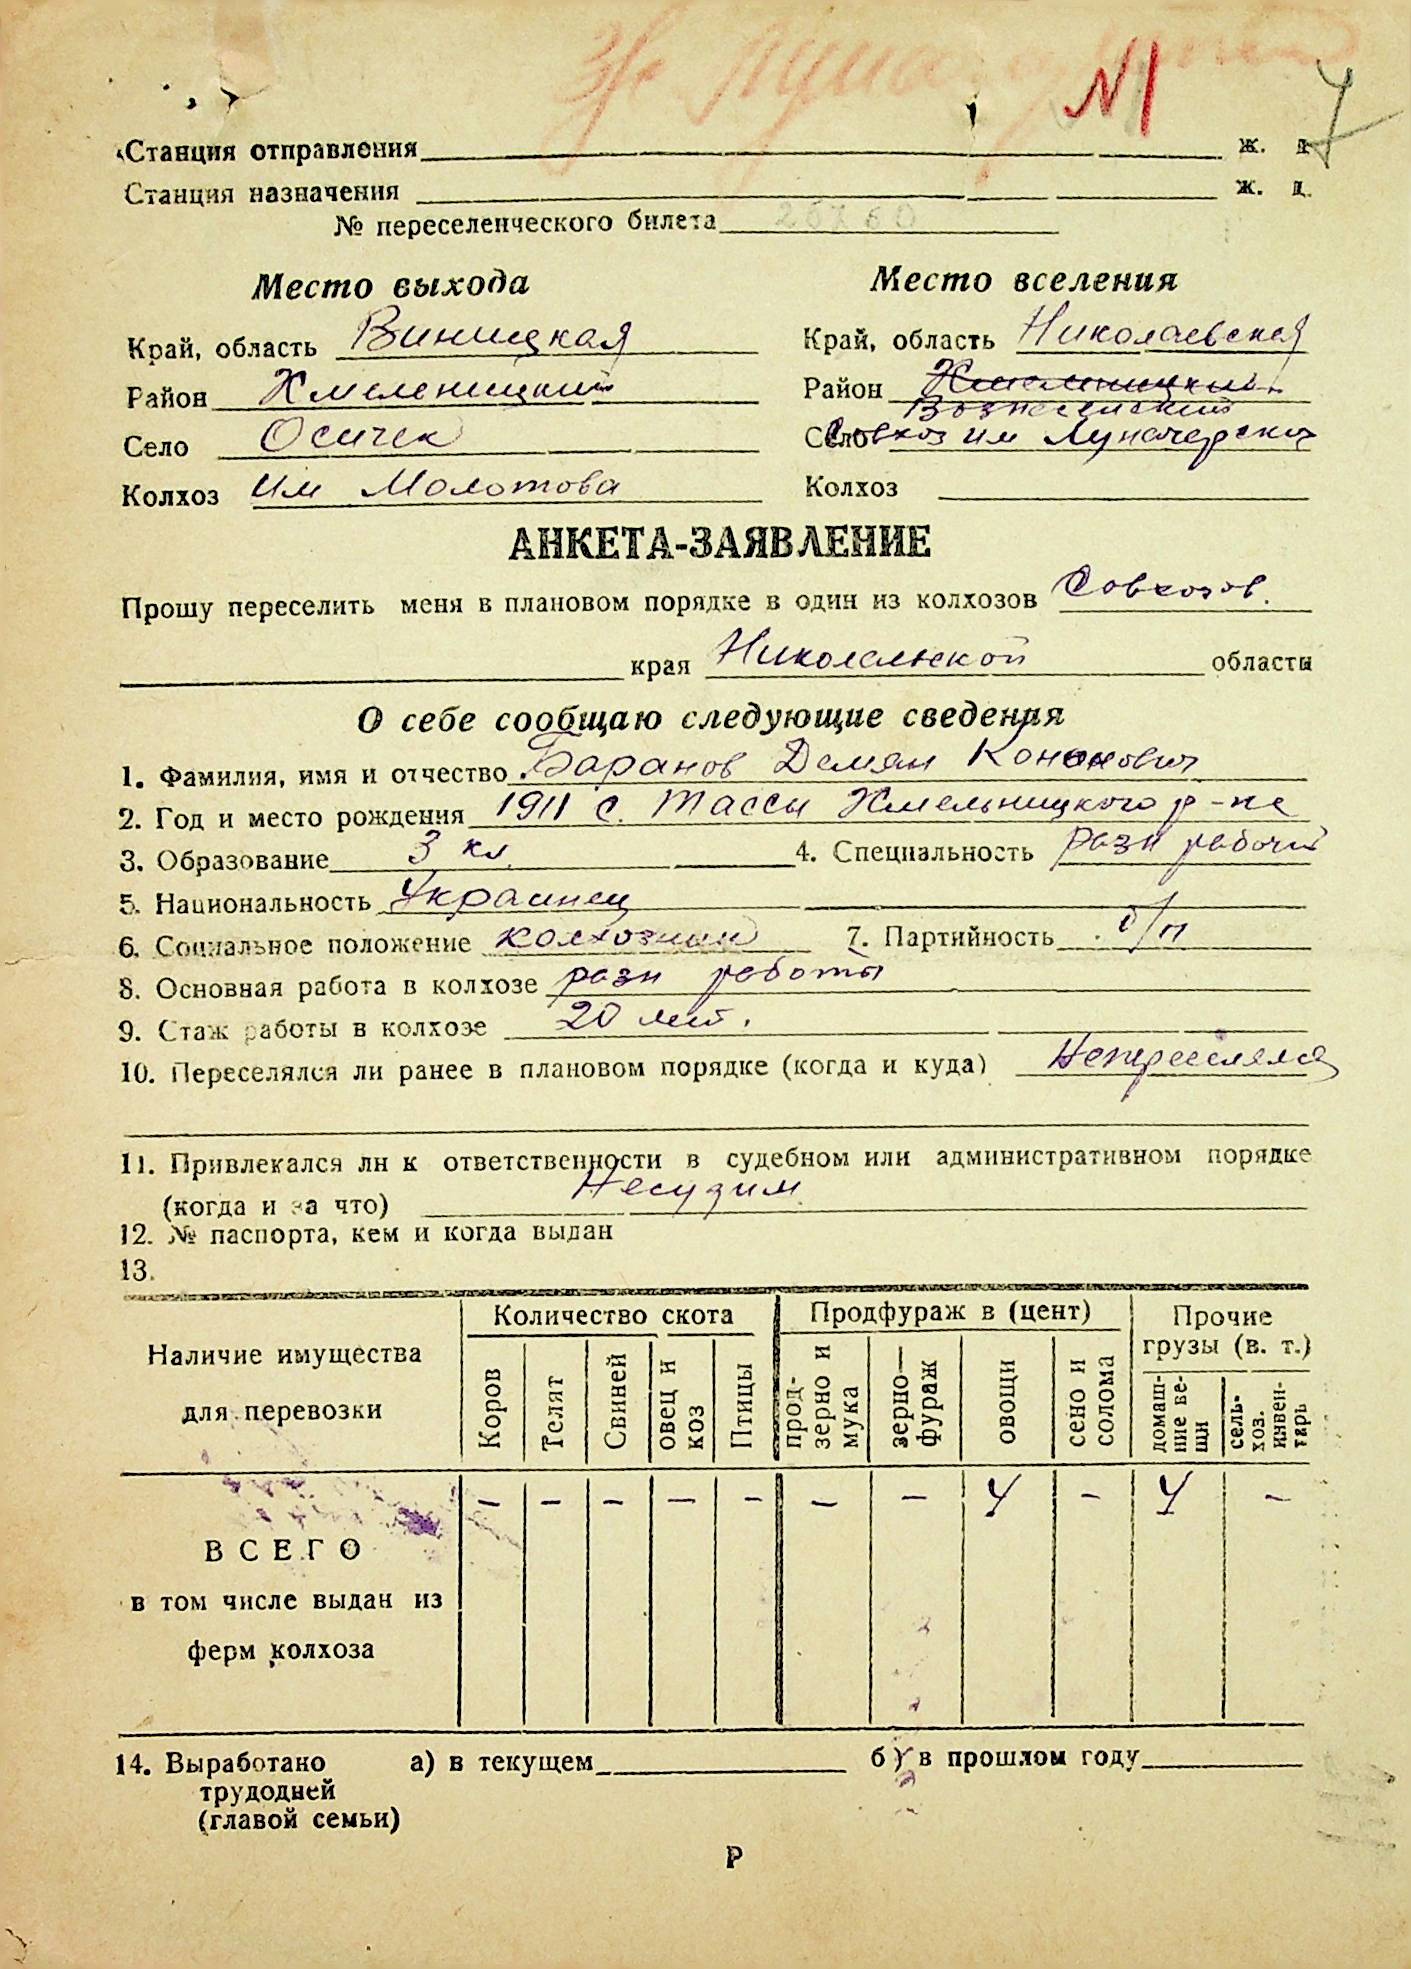 №1 7
Станция отправления ж. д.
Станция назначения ж. д.
№ переселенческого билета
Место выхода Место вселения
Край, область Виницкая Край, область Николаевская
Район Хмеленицкий Район Хмеленицкий
Вознесенский
Село Осичек Село Совхоз им Луначарского
Колхоз им Молотова Колхоз
АНКЕТА-ЗАЯВЛЕНИЕ
Прошу переселить меня в плановом порядке в один из колхозов Совхозов.
края области
О себе сообщаю следующие сведения
1. Фамилия, имя и отчество Баранов Демян Кононович
2. Год и место рождения 1911 с. Тассы Хмельницкого р-на
3. Образование 3 кл. 4. Специальность разн рабочий
5. Национальность Украинец
6. Социальное положение колхозник 7. Партийность б/п
8. Основная работа в колхозе разн работы
9. Стаж работы в колхозе 20 лет.
10. Переселялся ли ранее в плановом порядке (когда и куда)
11. Привлекался ли к ответственности в судебном или административном порядке
(когда и за что) Несудим
12. № паспорта, кем и когда выдан
13.
Наличие имущества для перевозки
Количество скота Продфураж в (цент) Прочие грузы (в. т.)
Коров Телят Свиней овец и коз Птицы прод-зерно и мука зерно—фураж овощи сено и солома домаш-ние ве-щи сель-хоз. инвен-тарь
ВСЕГО – – – – – – – 4 – 4 –
в том числе выдан из
ферм колхоза
14. Выработано а) в текущем б) в прошлом году
трудодней
(главой семьи)
Р